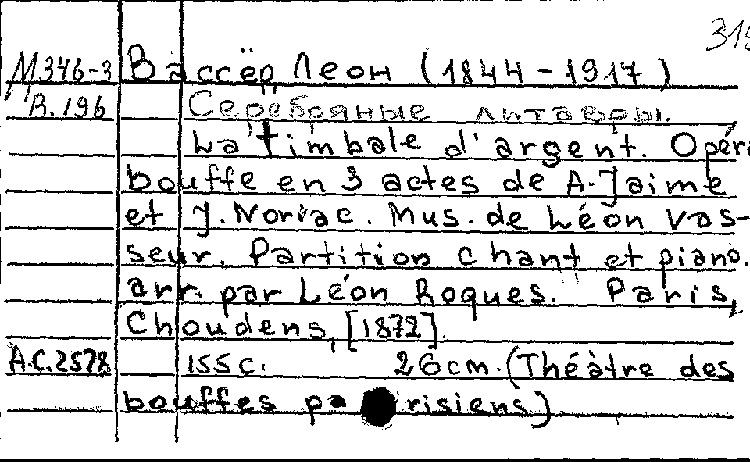 319
M346-3 Вассёр Леон (1844-1917)
R.196 Серебряные литавры.
La timbale d'argent. Opéra
bouffe en 3 actes de A. Jaime
et J. Noriac. Mus. de Léon Vas-
seur. Partition chant et piano.
arr. par Léon Roques. Paris,
Choudens, [1872]
A.C.2578 155c. 26cm. (Théàtre des
bouffes parisiens)